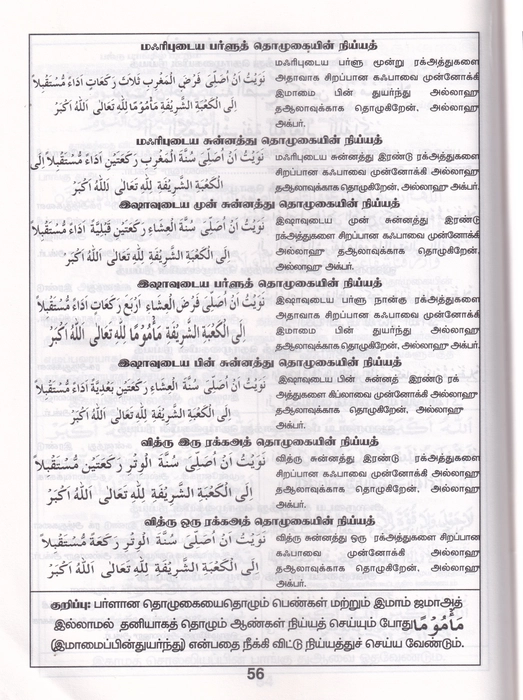 மஃரிபுடைய பர்ளுத் தொழுகையின் நிய்யத்
نَوَيْتُ اَنْ اُصَلِّىَ فَرْضَ الْمَغْرِبِ ثَلَاثَ رَكَعَاتٍ اَدَاءً مُّسْتَقْبِلاً
اِلَى الْكَعْبَةِ الشَّرِيْفَةِ مَأْمُوْمًا لِلّٰهِ تَعَالٰى اَللهُ اَكْبَرُ
மஃரிபுடைய பர்ளு மூன்று ரக்அத்துகளை
அதாவாக சிறப்பான கஃபாவை முன்னோக்கி
இமாமை பின் துயர்ந்து அல்லாஹு
தஆலாவுக்காக தொழுகிறேன், அல்லாஹு
அக்பர்.
மஃரிபுடைய சுன்னத்து தொழுகையின் நிய்யத்
نَوَيْتُ اَنْ اُصَلِّىَ سُنَّةَ الْمَغْرِبِ رَكْعَتَيْنِ اَدَاءً مُّسْتَقْبِلاً اِلَى
الْكَعْبَةِ الشَّرِيْفَةِ لِلّٰهِ تَعَالٰى اَللهُ اَكْبَرُ
மஃரிபுடைய சுன்னத்து இரண்டு ரக்அத்துகளை
சிறப்பான கஃபாவை முன்னோக்கி அல்லாஹு
தஆலாவுக்காக தொழுகிறேன், அல்லாஹு அக்பர்.
இஷாவுடைய முன் சுன்னத்து தொழுகையின் நிய்யத்
نَوَيْتُ اَنْ اُصَلِّىَ سُنَّةَ الْعِشَاءِ رَكْعَتَيْنِ قَبْلِيَّةً اَدَاءً مُّسْتَقْبِلاً
اِلَى الْكَعْبَةِ الشَّرِيْفَةِ لِلّٰهِ تَعَالٰى اَللهُ اَكْبَرُ
இஷாவுடைய முன் சுன்னத்து இரண்டு
ரக்அத்துகளை சிறப்பான கஃபாவை முன்னோக்கி
அல்லாஹு தஆலாவுக்காக தொழுகிறேன்,
அல்லாஹு அக்பர்.
இஷாவுடைய பர்ளுத் தொழுகையின் நிய்யத்
نَوَيْتُ اَنْ اُصَلِّىَ فَرْضَ الْعِشَاءِ اَرْبَعَ رَكَعَاتٍ اَدَاءً مُّسْتَقْبِلاً
اِلَى الْكَعْبَةِ الشَّرِيْفَةِ مَأْمُوْمًا لِلّٰهِ تَعَالٰى اَللهُ اَكْبَرُ
இஷாவுடைய பர்ளு நான்கு ரக்அத்துகளை
அதாவாக சிறப்பான கஃபாவை முன்னோக்கி
இமாமை பின் துயர்ந்து அல்லாஹு
தஆலாவுக்காக தொழுகிறேன், அல்லாஹு அக்பர்.
இஷாவுடைய பின் சுன்னத்து தொழுகையின் நிய்யத்
نَوَيْتُ اَنْ اُصَلِّىَ سُنَّةَ الْعِشَاءِ رَكْعَتَيْنِ بَعْدِيَّةً اَدَاءً مُّسْتَقْبِلاً
اِلَى الْكَعْبَةِ الشَّرِيْفَةِ لِلّٰهِ تَعَالٰى اَللهُ اَكْبَرُ
இஷாவுடைய பின் சுன்னத் இரண்டு ரக்
அத்துகளை கிப்லாவை முன்னோக்கி அல்லாஹு
தஆலாவுக்காக தொழுகிறேன், அல்லாஹு
அக்பர்.
வித்ரு இரு ரக்கஅத் தொழுகையின் நிய்யத்
نَوَيْتُ اَنْ اُصَلِّىَ سُنَّةَ الْوِتْرِ رَكْعَتَيْنِ مُّسْتَقْبِلاً
اِلَى الْكَعْبَةِ الشَّرِيْفَةِ لِلّٰهِ تَعَالٰى اَللهُ اَكْبَرُ
வித்ரு சுன்னத்து இரண்டு ரக்அத்துகளை
சிறப்பான கஃபாவை முன்னோக்கி அல்லாஹு
தஆலாவுக்காக தொழுகிறேன், அல்லாஹு
அக்பர்.
வித்ரு ஒரு ரக்கஅத் தொழுகையின் நிய்யத்
نَوَيْتُ اَنْ اُصَلِّىَ سُنَّةَ الْوِتْرِ رَكْعَةً مُّسْتَقْبِلاً
اِلَى الْكَعْبَةِ الشَّرِيْفَةِ لِلّٰهِ تَعَالٰى اَللهُ اَكْبَرُ
வித்ரு சுன்னத்து ஒரு ரக்அத்துகளை சிறப்பான
கஃபாவை முன்னோக்கி அல்லாஹு
தஆலாவுக்காக தொழுகிறேன், அல்லாஹு
அக்பர்.
குறிப்பு: பர்ளான தொழுகையைதொழும் பெண்கள் மற்றும் இமாம் ஜமாஅத்
இல்லாமல் தனியாகத் தொழும் ஆண்கள் நிய்யத் செய்யும் போது مَأْمُوْمًا
(இமாமைப்பின்துயர்ந்து) என்பதை நீக்கி விட்டு நிய்யத்துச் செய்ய வேண்டும்.
56